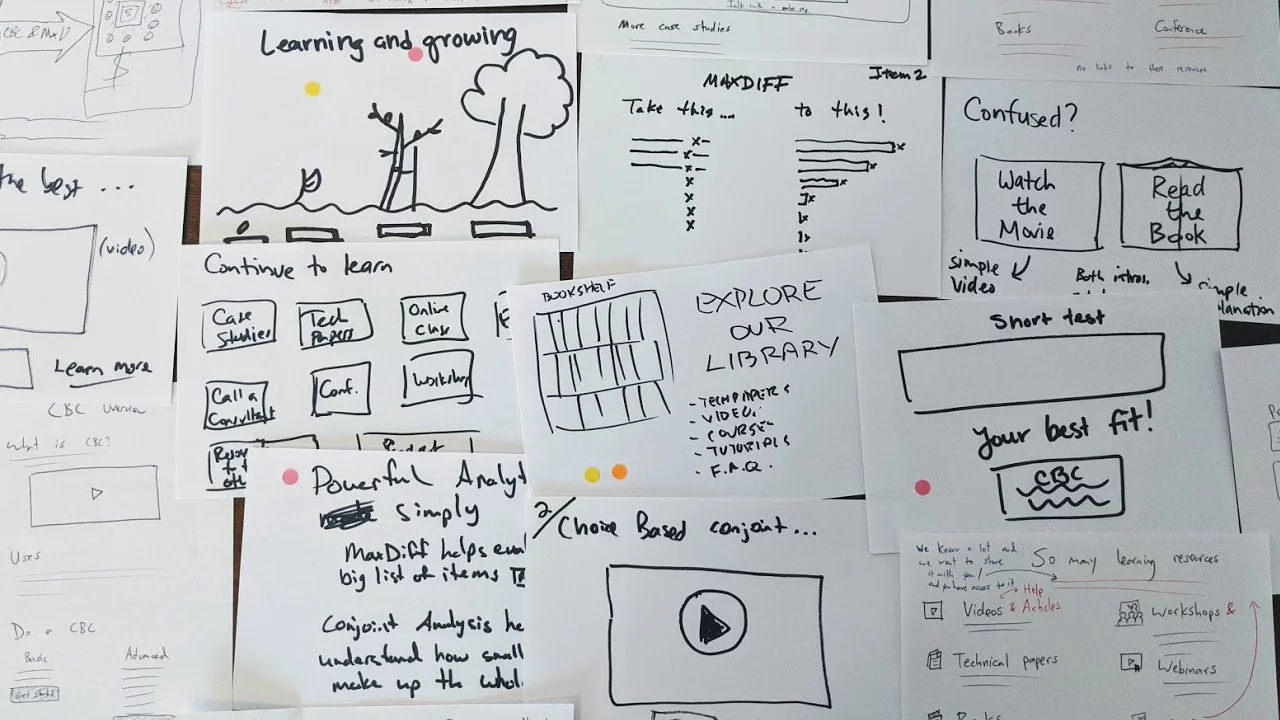 CBC & MaxD
$
Learning and growing
More case studies
MAXDIFF
Item 2
Take this...
to this!
Books
Conference
no links to these resources
Confused?
Watch
the
Movie
Read
the
Book
simple
video
Both intros.
simple
the best ...
(video)
Learn more
Continue to learn
Case
Studies
Tech
Papers
Online
Class
Call a
Consultant
Conf.
Workshop
BOOKSHELF
EXPLORE
OUR
LIBRARY
- TECH PAPERS
- VIDEO
- COURSES
- TUTORIALS
- F.A.Q.
Short test
Your best fit!
CBC
CBC Overview
What is CBC?
Uses
Do a CBC
Basic
Advanced
Get Started
Powerful Analyt
simply
MaxDiff helps eval
big list of items
Conjoint Analysis he
understand how small
make up the whol
2/
Choice Based conjoint...
We know a lot and
we want to share
it with you!
and you have access to it
So many learning resources
Help
Videos & Articles
Workshops &
Technical papers
Webinars
Books